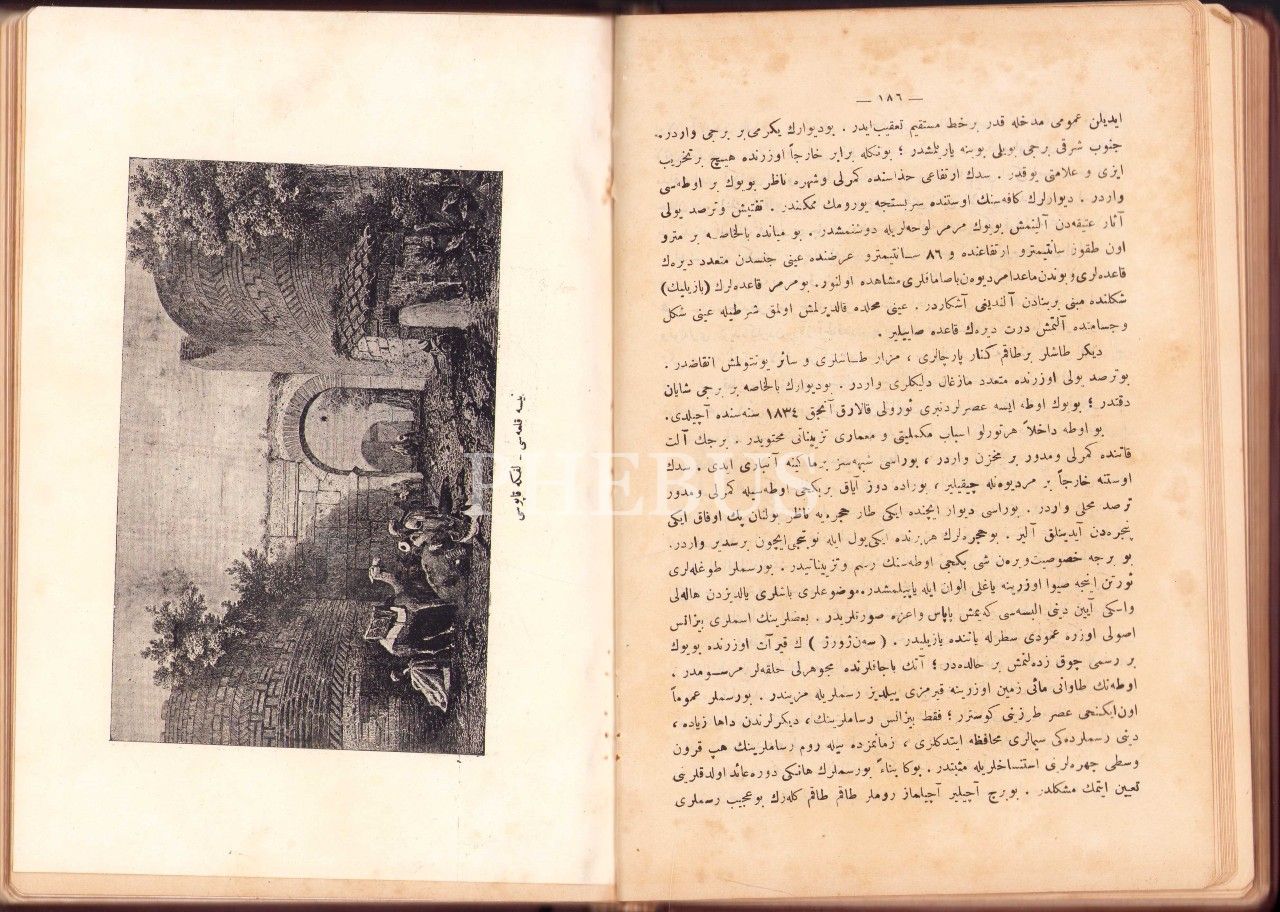 — ١٨٦ —
ايديلن عمومى مدخله قدر بر خط مستقيم تعقيب ايدر . بوديوارك يكرمى بر برجى واردر .
جنوب شرقى برجى بويلى بوينه يارلمشدر ؛ بونكله برابر خارجاً اوزرنده هيچ بر تخريب
ايزى و علامتى يوقدر . سدك ارتفاعى حذاسنده كمرلى وشهره ناظر بويوك بر اوطه سى
واردر . ديوارلرك كافه سنك اوستنده سربستجه يورومك ممكندر . تفتيش وترصد يولى
آثار عتيقه دن آلنمش بويوك مرمر لوحه لريله دوشنمشدر . بو ميانده بالخاصه بر مترو
اون طقوز سانتيمترو ارتفاعنده و ٨٦ سانتيمترو عرضنده عينى جنسدن متعدد ديرك
قاعده لرى و بوندن ماعدا مرديوه ن باصامافلرى مشاهده اولنور . بومرمر قاعده لرك (بازيليك)
شكلنده مبنى بر بنادن آلنديغى آشكاردر . عينى محلده قالديرلمش اولمق شرطيله عينى شكل
و جسامتده آلتمش درت ديرك قاعده صاييلير .
ديكر طاشلر بر طاقم كنار پارچالرى ، مزار طاشلرى و سائر يونتولمش انقاضدر .
بو ترصد يولى اوزرنده متعدد مازغال دلكلرى واردر . بوديوارك بالخاصه بر برجى شايان
دقتدر ؛ بويوك اوطه ايسه عصرلردنبرى ئورولى قالارق آنجق ١٨٣٤ سنه سنده آچيلدى.
بو اوطه داخلاً هرتورلو اسباب مكمليتى و معمارى تزييناتى محتويدر . برجك آلت
قاتنده كمرلى ومدور بر مخزن واردر ، بوراسى شبهه سز بر ماكنه آنبارى ايدى . سدك
اوستنه خارجاً بر مرديونله چيقيلير ، بوراده دوز آياق بر بكجى اوطه سيله كمرلى ومدور
ترصد محلى واردر . بوراسى ديوار ايچنده ايكى طار حجره يه ناظر بولنان پك اوفاق ايكى
پنجره دن آيدينلق آلير . بوحجره لرك هر برنده ايكى يول ايله نوبتجى ايچون بر سدير واردر.
بو برجه خصوصيت ويره ن شى بكجى اوطه سنك رسم وتزييناتيدر . بورسملر طوغله لرى
ئورتن اينجه صيوا اوزرينه ياغلى الوان ايله ياپيلمشدر . موضوعلرى باشلرى يالديزدن هاله لى
واسكى آيين دينى البسه سى كه يمش پاپاس واعزه صورتلريدر . بعضلرينك اسملرى بيزانس
اصولى اوزره عمودى سطرله ياننده يازيليدر . ( سه ن ژورژ ) ك قيرآت اوزرنده بويوك
بر رسمى چوق زده لنمش بر حالده در ؛ آتك باجاقلرنده مجوهرلى حلقه لر مرسومدر .
اوطه نك طاوانى مائى زمين اوزرينه قيرمزى ييلديز رسملريله مزيندر . بورسملر عموماً
اون ايكنجى عصر طرزينى كوسترر ؛ فقط بيزانس رساملرينك ، ديكرلرندن داها زياده ،
دينى رسملرده كى سيمالرى محافظه ايتدكلرى ، زمانمزده بيله روم رساملرينك هپ قرون
وسطى چهره لرينى استنساخلريله مثبتدر . بوكا بناءً بورسملرك هانكى دوره عائد اولدقلرينى
تعيين ايتمك مشكلدر . بوبرج آچيلير آچيلماز روملر طاقم طاقم كله رك بوعجيب رسملرى
قلعه سى - لفكه قاپوسى
PHEBUS